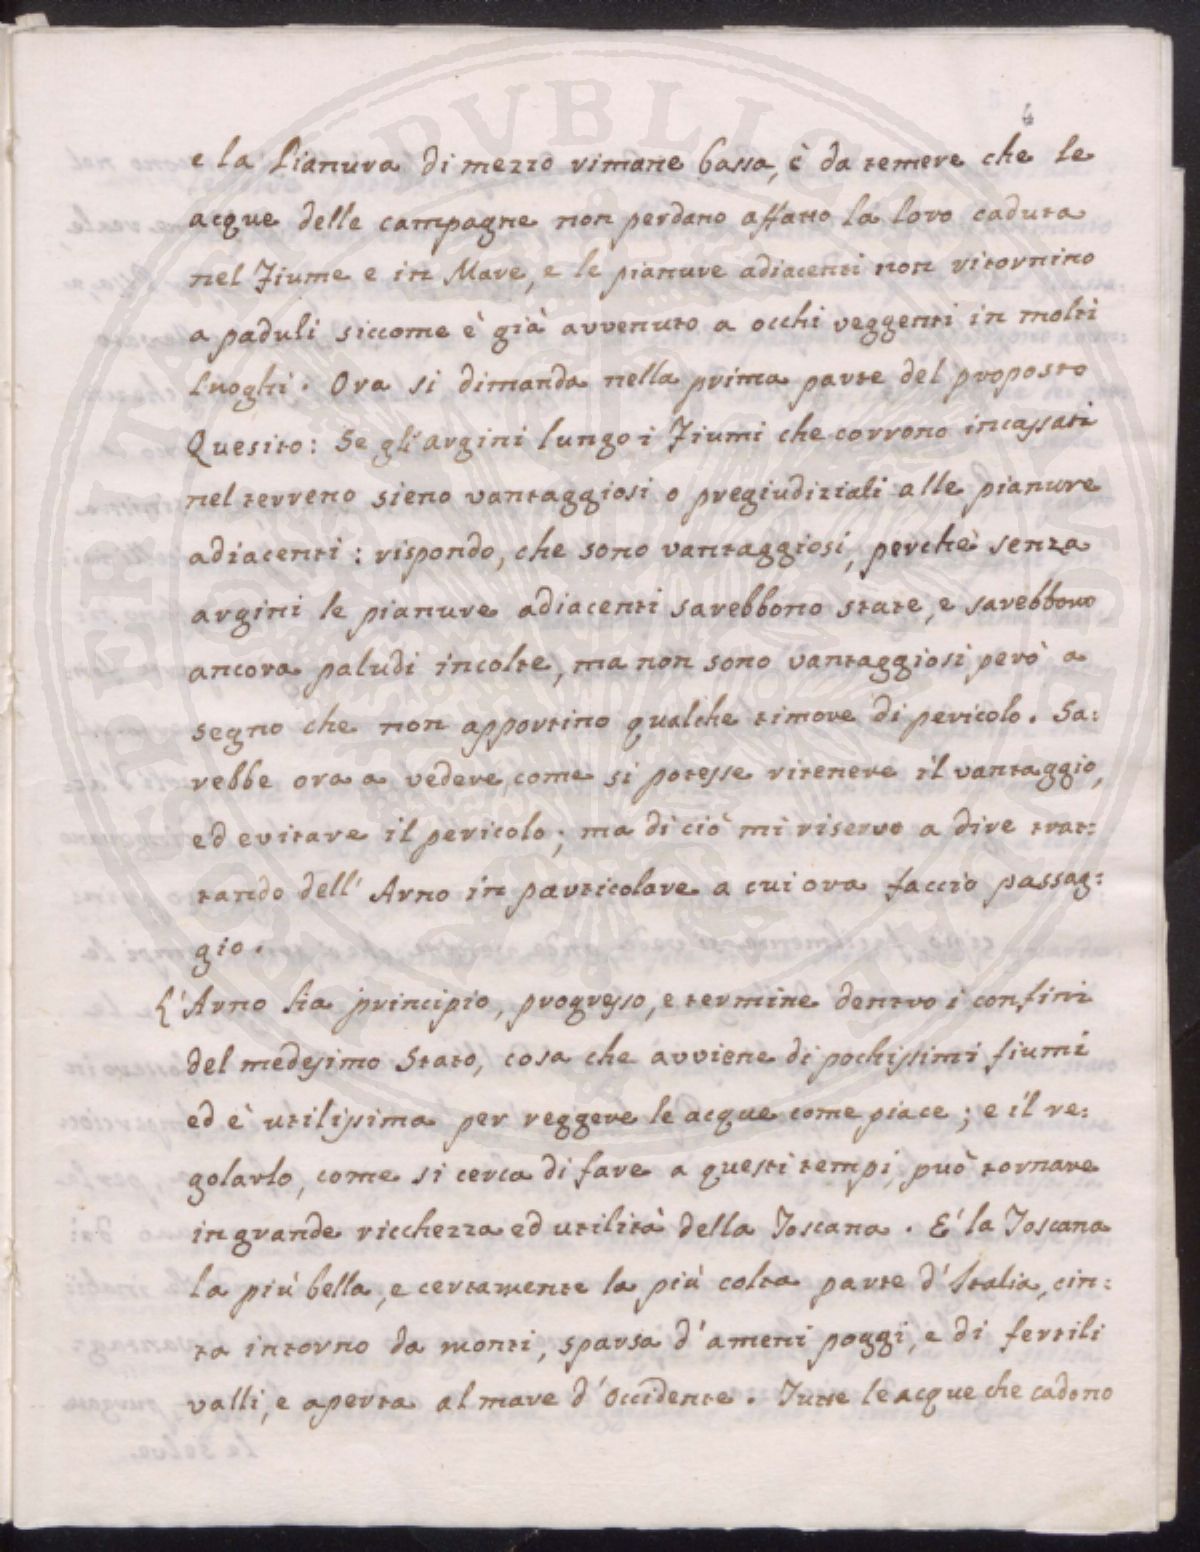 4
e la Pianura di mezzo rimane bassa, è da temere che le
acque delle campagne non perdano affatto la loro caduta
nel Fiume e in Mare, e le pianure adiacenti non ritornino
a paduli siccome è già avvenuto a occhi veggenti in molti
luoghi. Ora si dimanda nella prima parte del proposto
Quesito: Se gli argini lungo i Fiumi che corrono incassati
nel terreno sieno vantaggiosi o pregiudiziali alle pianure
adiacenti: rispondo, che sono vantaggiosi, perchè senza
argini le pianure adiacenti sarebbono state, e sarebbono
ancora paludi incolte, ma non sono vantaggiosi però a
segno che non apportino qualche timore di pericolo. Sa:
rebbe ora a vedere, come si potesse ritenere il vantaggio,
ed evitare il pericolo; ma di ciò mi riservo a dire trat:
tando dell' Arno in particolare a cui ora faccio passag:
gio.
L'Arno ha principio, progresso, e termine dentro i confini
del medesimo Stato, cosa che avviene di pochissimi fiumi
ed è utilissima per reggere le acque come piace; e il re:
golarlo, come si cerca di fare a questi tempi, può tornare
in grande ricchezza ed utilità della Toscana. E' la Toscana
la più bella, e certamente la più colta parte d'Italia, cin:
ta intorno da monti, sparsa d'ameni poggi, e di fertili
valli, e aperta al mare d'Occidente. Tutte le acque che cadono